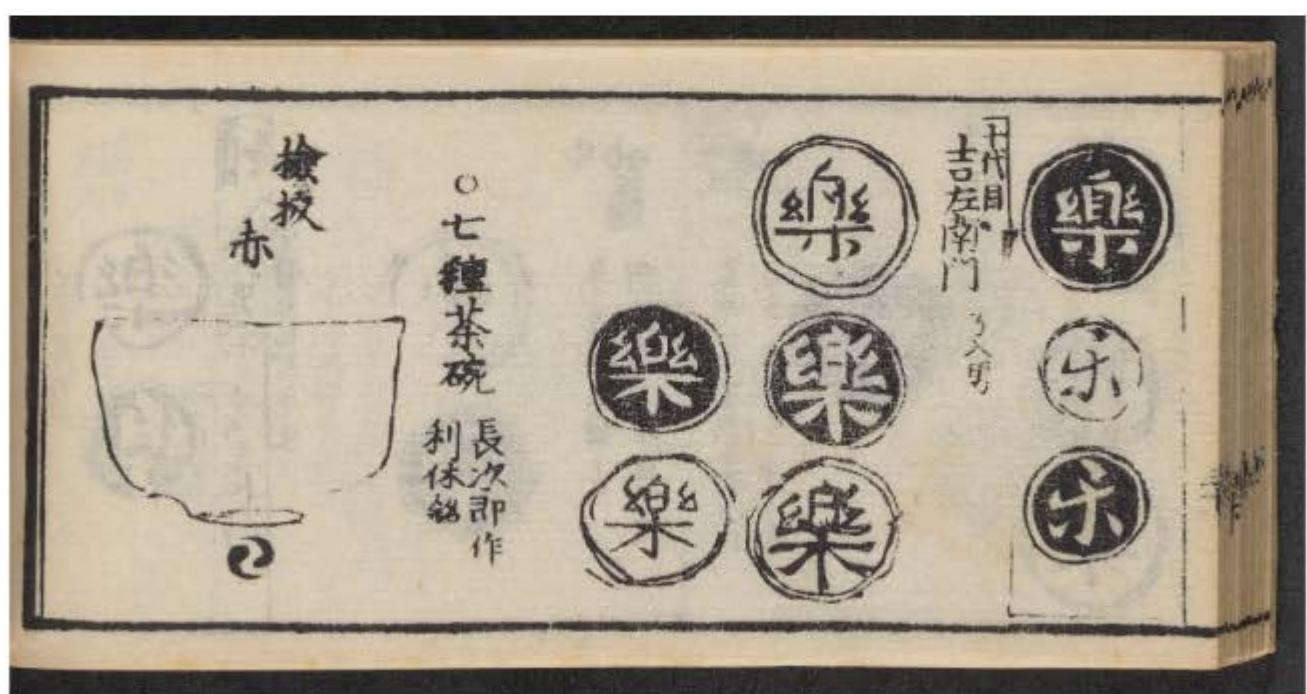 樂
乐
乐
十代目
吉左衛門 了入男
樂
樂
樂
樂
樂
○七種茶碗
長次郎作
利休銘
撿挍
赤